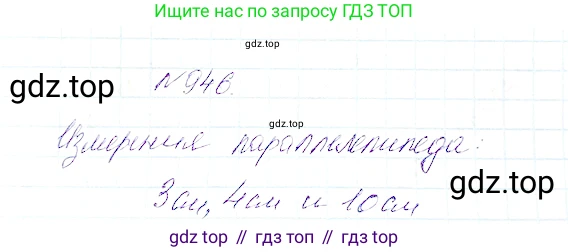 Ищите нас по запросу ГДЗ ТОП
gdz.top
gdz.top
№946.
Измерения параллелепипеда:
gdz.top
3см, 4см и 10см
gdz.top // гдз топ // gdz.top